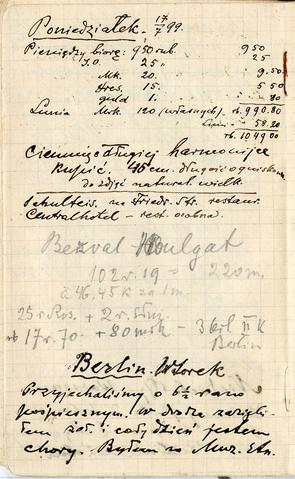 Poniedziałek. 17/7 99.
Pieniędzy biorę: 950 rub. 950
I.O. 25 " 25
Mk. 20. 9.50
Hres. 15. 5 50
guld 1. - 80
Lunia Mrk. 120 (własnych) rb. 990.80
58.20
rb. 1049 00
Ciemnię długiej harmonijce
Kupić. 46 cm. długość ogniskowa
do zdjęć natural. wielk.
Schulteis. na Friedr. Str. restaur.
Centralhotel - rest. osobna.
Bezval - Houlgat
102 v. 19 = 220 m.
à 46,45 k za 1 m.
25 r Ros. + 2 r. służ.
rb 17 r. 70 + 80 mrk - 3 bil II K
Berlin
Berlin. Wtorek
Przyjechaliśmy o 6½ rano
pośpiesznym. w drodze
żoł. i cały dzień jestem
chory. Byłem w Muz. Etn.